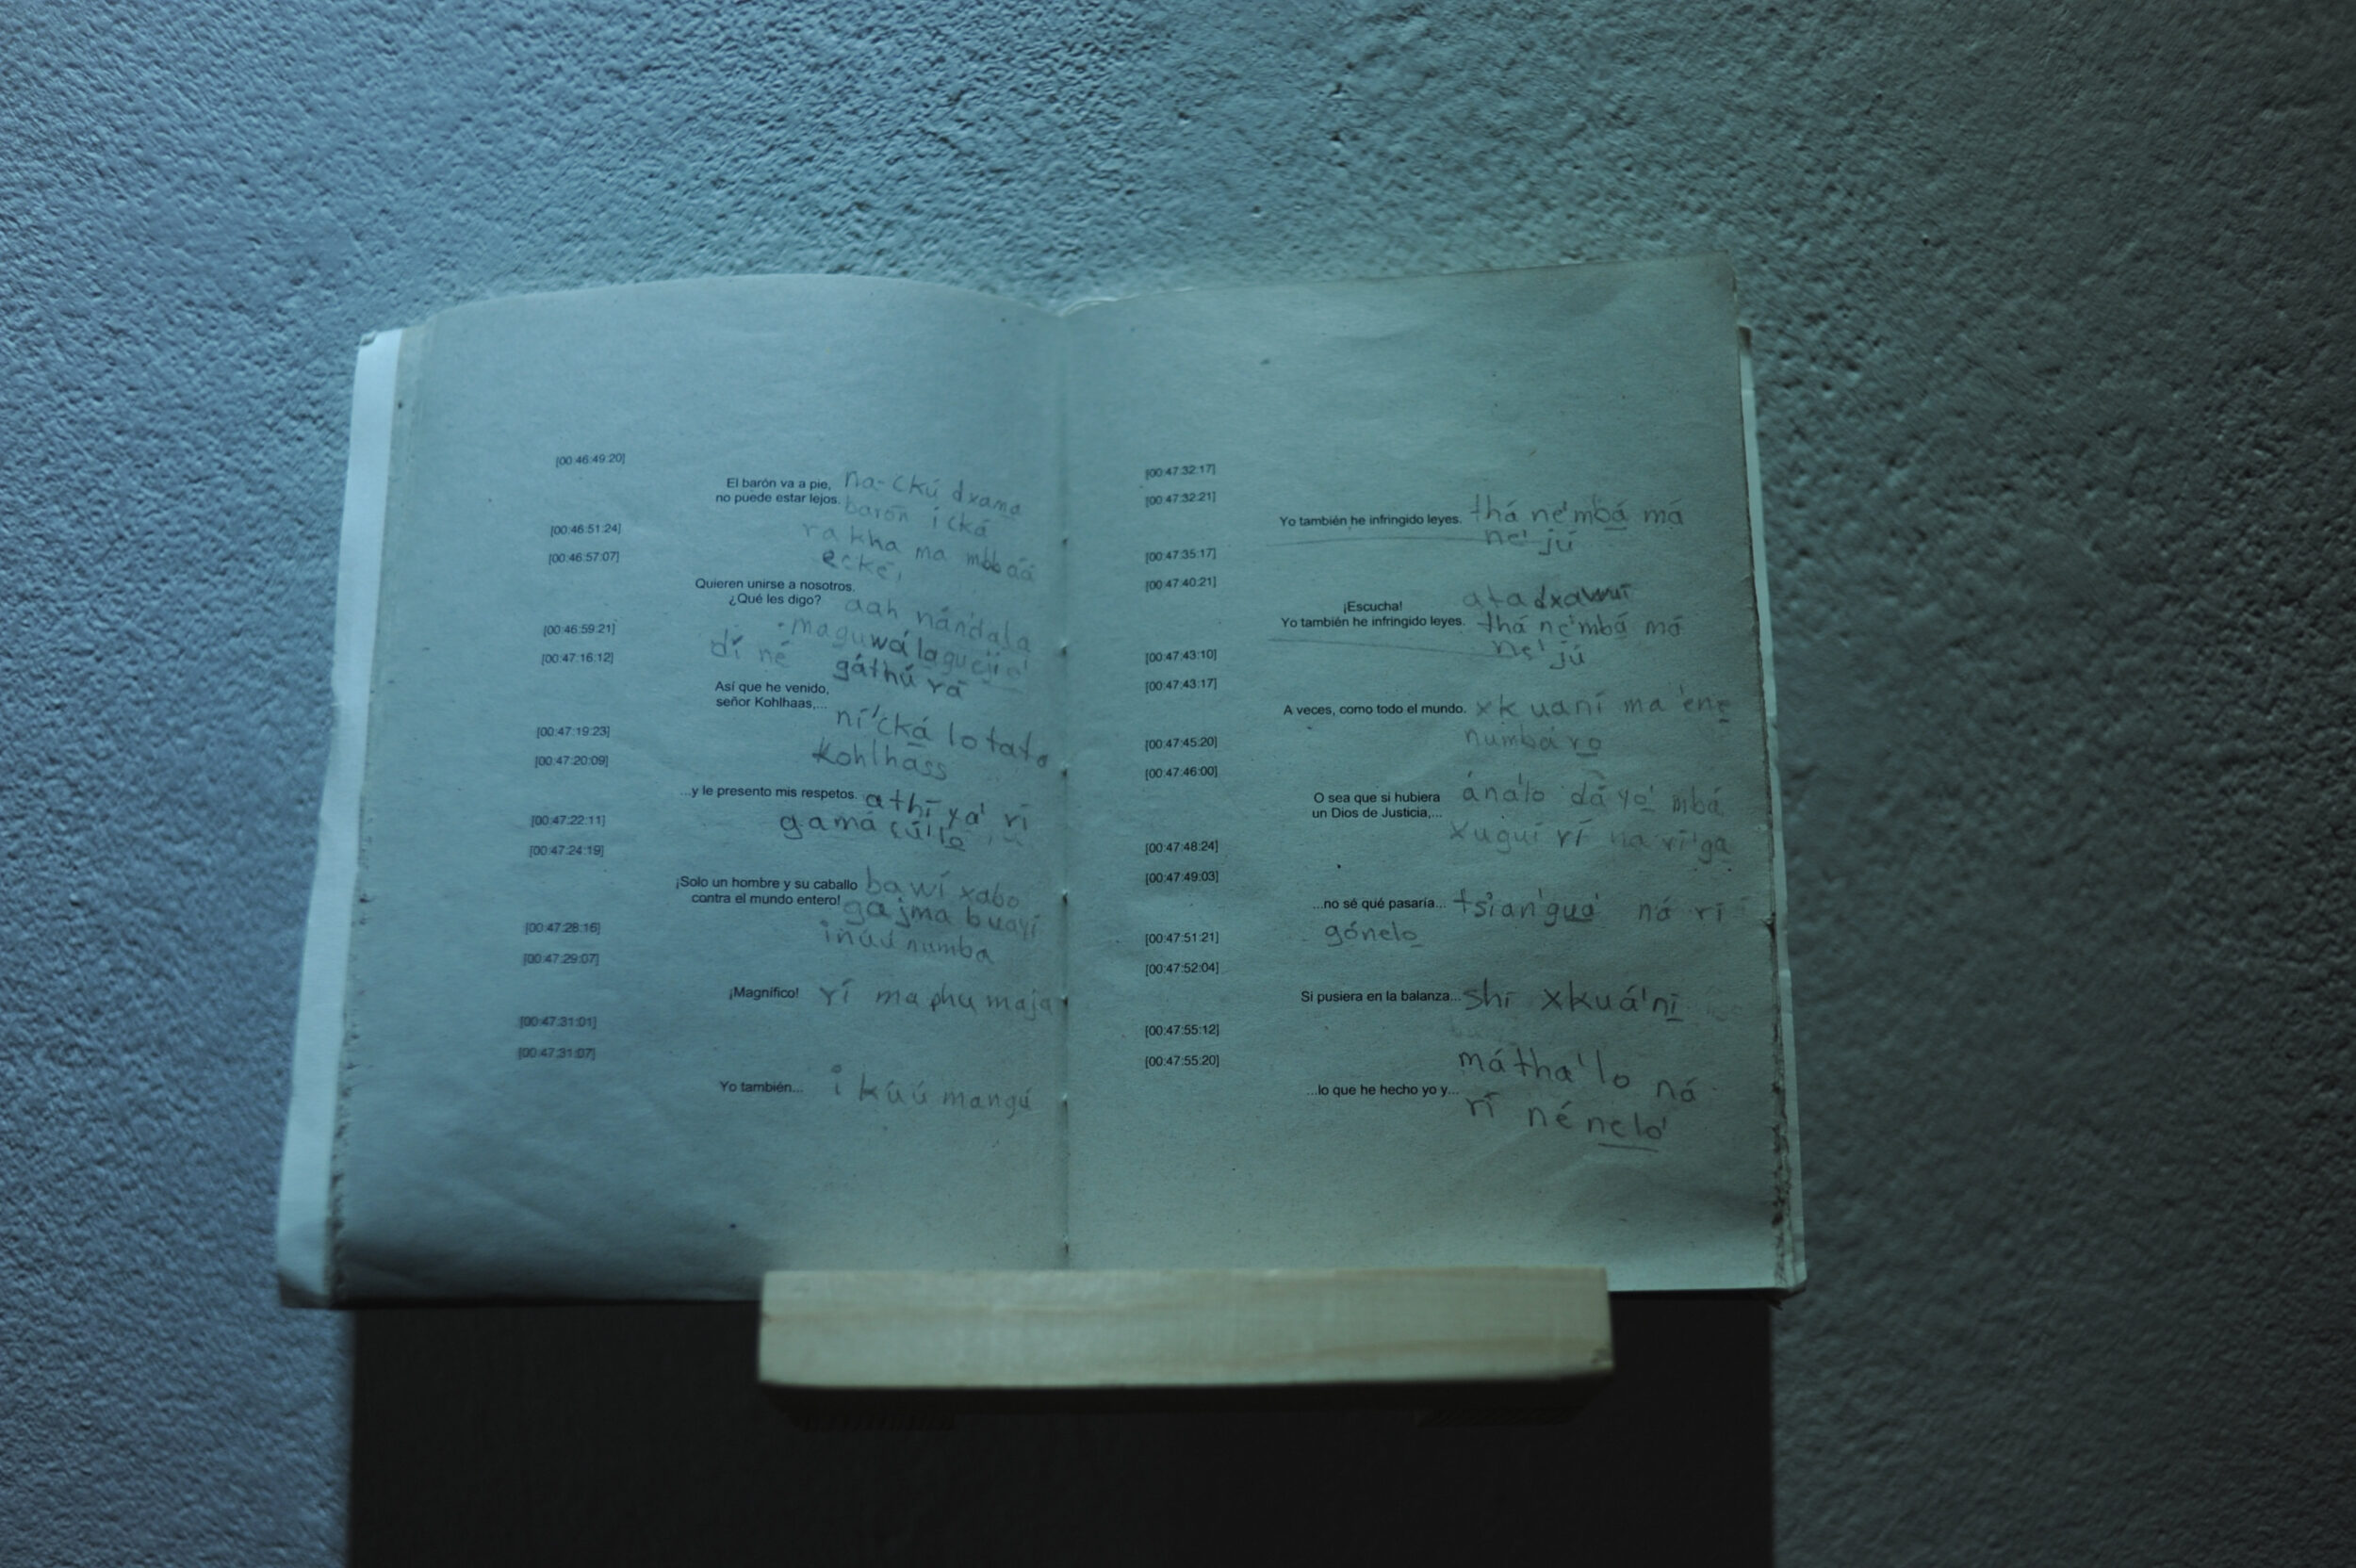 [00:46:49:20]
El barón va a pie, na-ckú dxama
no puede estar lejos. barón ícká
[00:46:51:24] rakha ma mbbaá
[00:46:57:07] ecké,
Quieren unirse a nosotros.
¿Qué les digo? aah nán'dala
[00:46:59:21] maguwá lagueji
[00:47:16:12] dí né gáthú rá
Así que he venido,
señor Kohlhaas,... ní'cká lo tata
[00:47:19:23] Kohlhass
[00:47:20:09]
...y le presento mis respetos. athí ya' rí
[00:47:22:11] gamá cú'lo
[00:47:24:19]
¡Solo un hombre y su caballo bawí xabo
contra el mundo entero! gajma buayí
[00:47:28:16] inúú numba
[00:47:29:07]
¡Magnífico! rí ma phu maja
[00:47:31:01]
[00:47:31:07]
Yo también... i kúú mangú
[00:47:32:17]
[00:47:32:21]
Yo también he infringido leyes. thá ne'mbá má
ne' jú
[00:47:35:17]
[00:47:40:21]
¡Escucha! atadxawuí
Yo también he infringido leyes. thá ne'mbá má
[00:47:43:10] ne' jú
[00:47:43:17]
A veces, como todo el mundo. xkuaní ma'ene
[00:47:45:20] numbáro
[00:47:46:00]
O sea que si hubiera áná'lo dáyo' mbá
un Dios de Justicia,... xuguí rí na rí'ga
[00:47:48:24]
[00:47:49:03]
...no sé qué pasaría... tsían'gua' ná rí
[00:47:51:21] gónelo
[00:47:52:04]
Si pusiera en la balanza... shí xkuá'ni
[00:47:55:12]
[00:47:55:20] mátha'lo ná
...lo que he hecho yo y... rí né nelo'